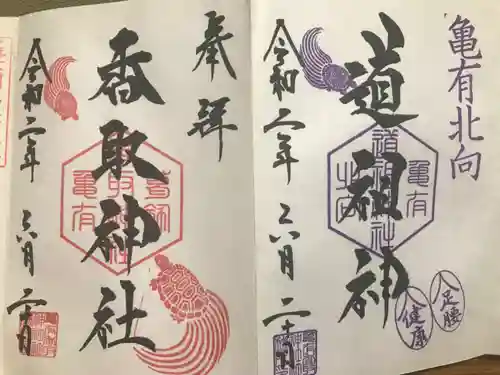 亀有北向
道祖神
道祖神社
亀有
北向
足腰
健康
令和二年 六月 二十日
奉拝
香取神社
香取神社
葛飾
亀有
令和二年 六月 二十日